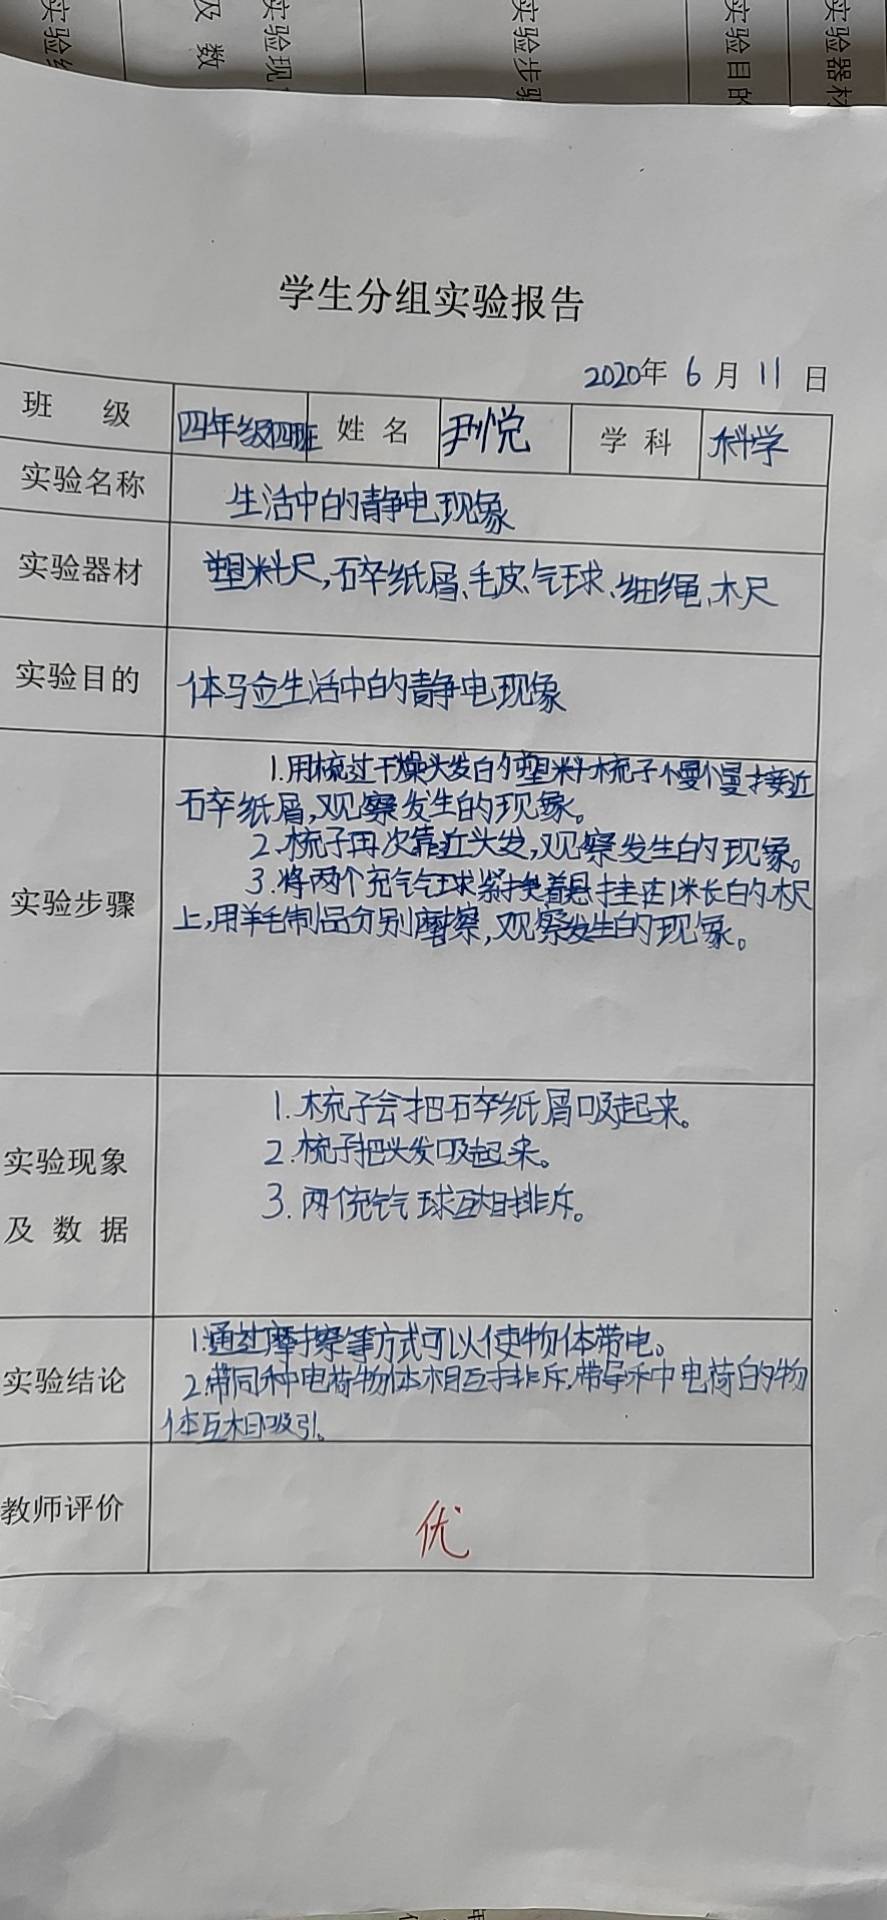 实验器材
实验目的
实验步骤
实验现
及 数
学生分组实验报告
2020年 6 月 11 日
班 级 四年级四班 姓 名 尹悦 学 科 科学
实验名称 生活中的静电现象
实验器材 塑料尺,碎纸屑、毛皮、气球、细绳、木尺
实验目的 体验生活中的静电现象
实验步骤
1.用梳过干燥头发的塑料梳子慢慢接近
碎纸屑,观察发生的现象。
2.梳子再次靠近头发,观察发生的现象。
3.将两个充气气球紧挨着悬挂在1米长的木尺
上,用羊毛制品分别摩擦,观察发生的现象。
实验现象
及 数 据
1.梳子会把碎纸屑吸起来。
2.梳子把头发吸起来。
3.两个充气气球互相排斥。
实验结论
1.通过摩擦等方式可以使物体带电。
2.带同种电荷物体相互排斥,带异种电荷的物
体互相吸引。
教师评价 优